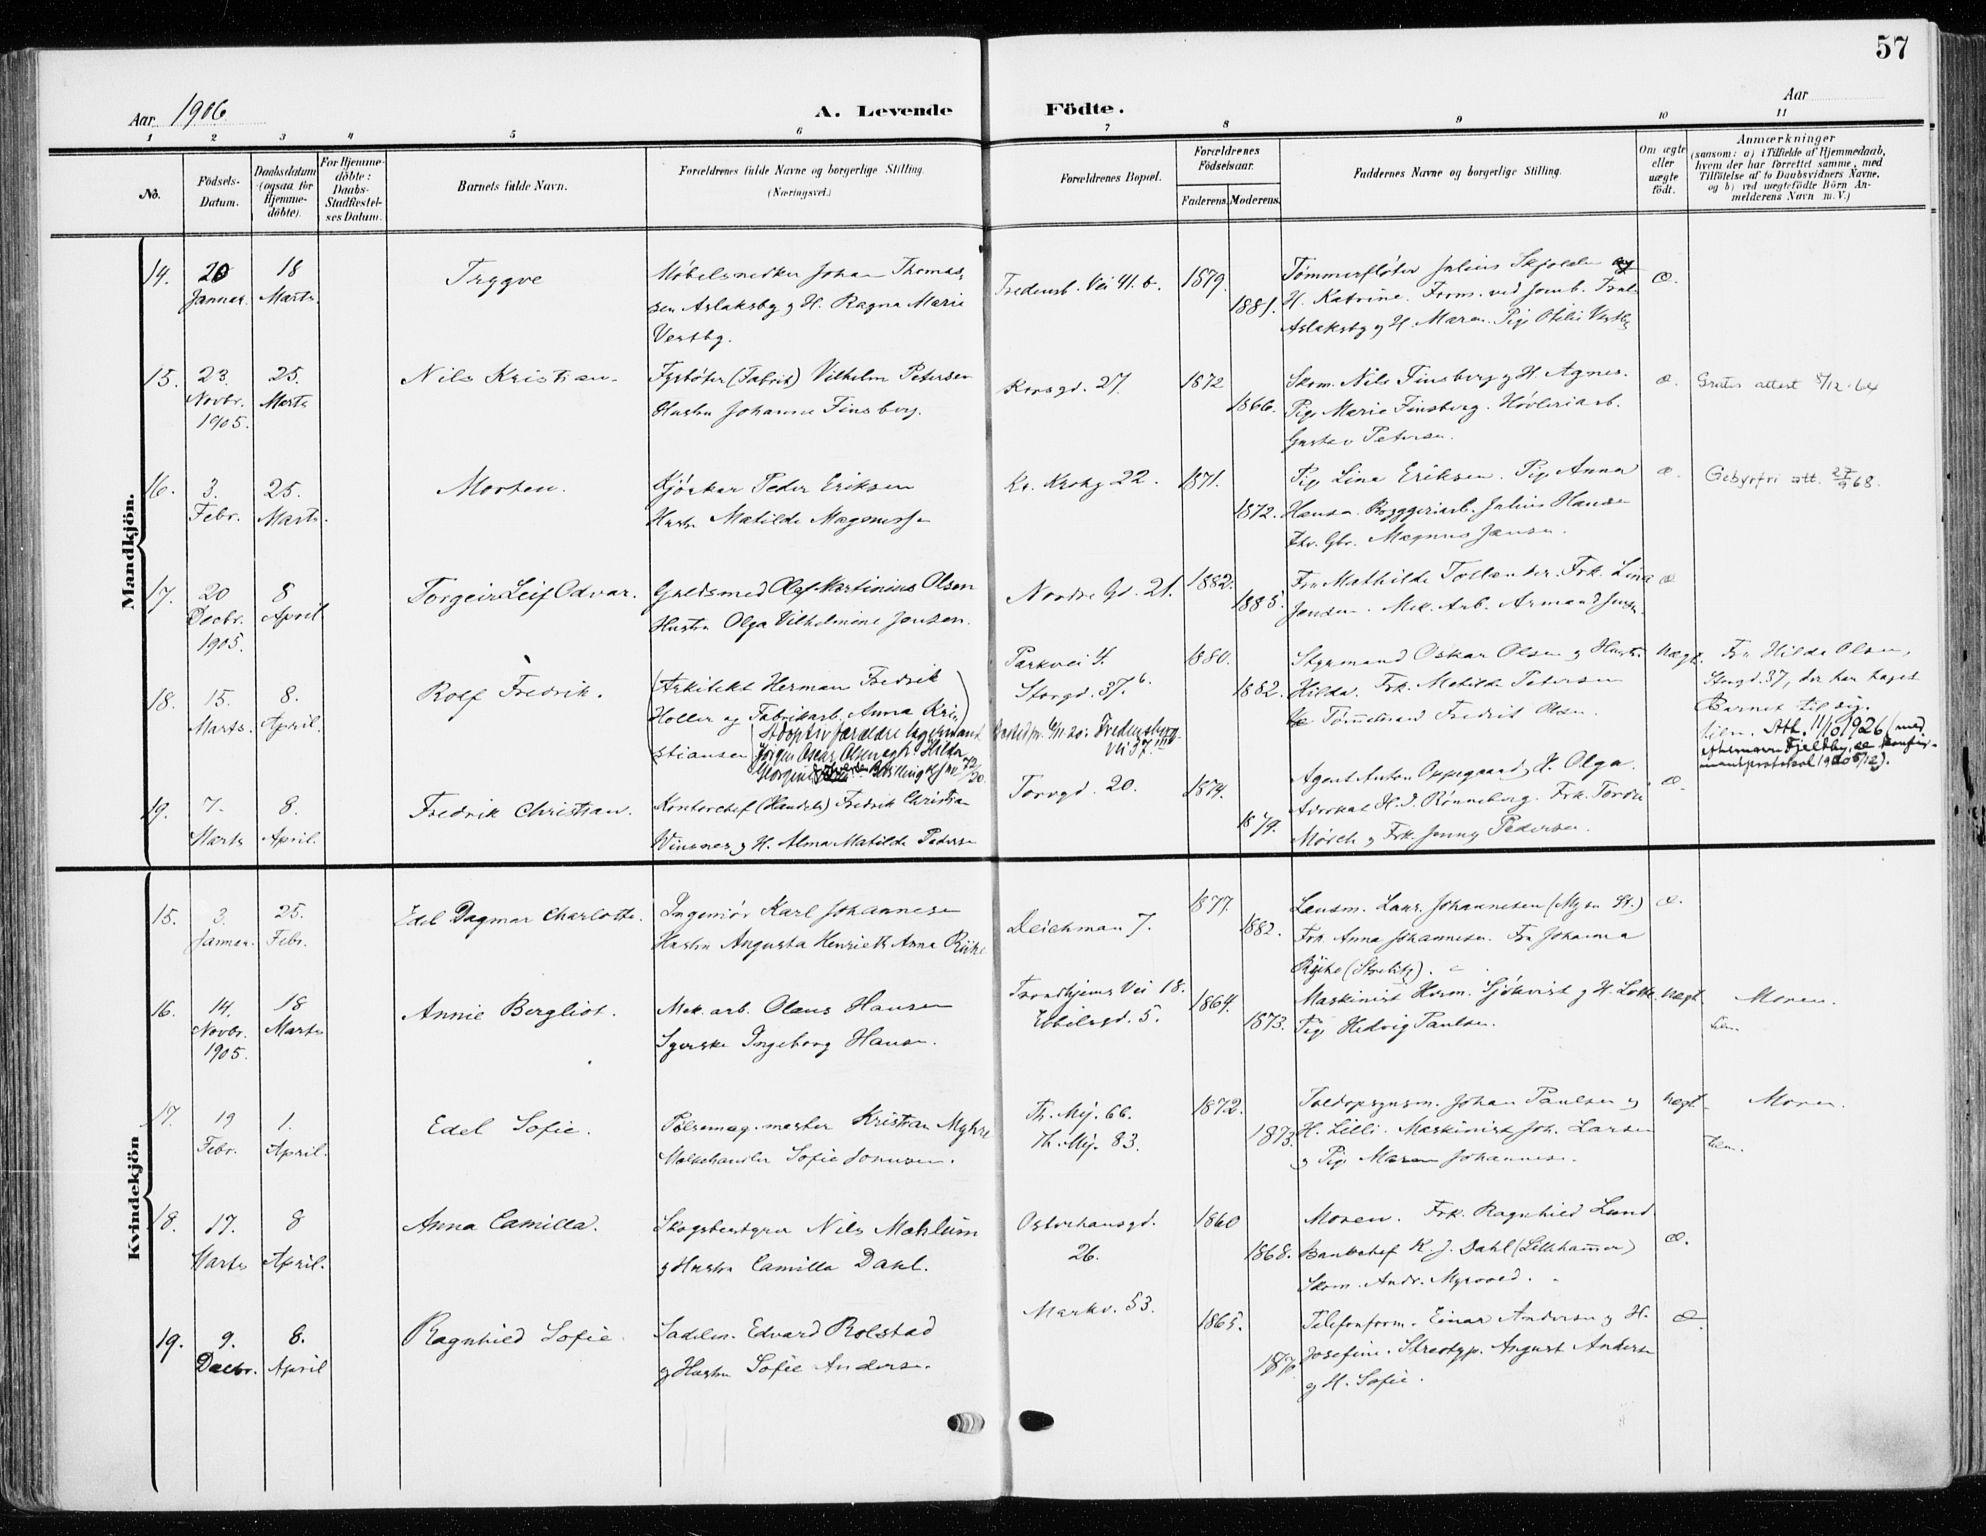 57
Aar 1906
A. Levende Födte.
Aar
1 2 3 4 5 6 7 8 9 10 11
No.
Födsels-Datum.
Daabsdatum (ogsaa for Hjemme-döbte).
For Hjemme-döbte: Daabs-Stadfæstel-ses Datum.
Barnets fulde Navn.
Forældrenes fulde Navne og borgerlige Stilling. (Næringsvei.)
Forældrenes Bopæl.
Forældrenes Födselsaar.
Faderens. Moderens.
Faddernes Navne og borgerlige Stilling.
Om ægte eller uægte födt.
Anmærkninger
(saasom: a) i Tilfælde af Hjemmedaab,
hvem der har forrettet samme, med
Tilföielse af to Daabsvidners Navne,
og b) ved uægtefödte Börn An-
melderens Navn m. V.)
Mandkjön.
14. 20 Januar. 18 Marts
Trygve
Møbelsnedker Johan Thomas-
sen Aslaksby og H. Ragna Marie
Vestby.
Fredensb. Vei 41. b.
1879. 1881.
Tømmerfløter Julius Skjolden og
H. Katrine. Form. ved Jernb.
Aslaksby og H. Maren. Pige Otilie Vestby
æ.
15. 23. Novbr. 1905. 25. Marts
Nils Kristian.
Fyrbøter (Fabrik) Vilhelm Petersen
Hustru Johanne Finsberg.
Korsgd. 27.
1872 1866.
Skom. Nils Finsberg og H. Agnes.
Pige Marie Finsberg. Høvleriarb.
Gustav Petersen.
æ.
Gratis attest 8/12-64
16. 3. Febr. 25. Marts.
Morten.
Kjørekar Peder Eriksen
Hustru Matilde
22.
1871. 1872.
Pige Lina Eriksen. Pige Anna
Hansen. Bryggeriarb. Julius Hansen
Magnus Jansen.
æ
Gebyrfri att. 27/9 68.
17. 20 Decbr. 1905. 8 April
Torgeir Leif Odvar.
Guldsmed Olaf Martinius Olsen
Hustru Olga Vilhelmine Jensen.
Nordre Gd. 21.
1882. 1885.
Fru Mathilde Frk. Lina
Jensen. Mek. Arb. Armand Jensen.
æ
18. 15. Marts. 8. April.
Rolf Fredrik.
(Arkitekt Herman Fredrik
Holler og Fabrikarb. Anna Kri-
stiansen)
Adoptivforældre lagermand
Jørgen Oscar Olsen og h. Hilda
Georgine
Parkvei 4.
Storgd. 37.b
6/11 20: Fredensborg-
vei 37 III
1880. 1882.
Styrmand Oskar Olsen og Hustru
Hilda. Frk. Matilde Petersen
Tømmermand Fredrik Olsen.
uægt.
Fru Hilda Olsen,
Storgd. 37, der har taget
Barnet til sig.
tien. Att. 11/10 1926 (med
19. 7. Marts 8. April.
Fredrik Christian.
Kontorchef (Handels) Fredrik Christian
Winsnes og H. Alma Matilde Pedersen
Torvgd. 20.
1874. 1879.
Agent Anton Oppegaard og H. Olga.
Advokat H. J. Rønneberg. Frk. Tordis
Mørch og Frk. Jenny Pedersen.
æ.
Kvindekjön
15. 3. Januar. 25. Febr.
Edel Dagmar Charlotte.
Ingeniør Karl Johannesen
Hustru Augusta Henriette Anna
Deichman 7.
1877. 1882.
Lensm. Laur. Johannesen (Mysen St.)
Frk. Anna Johannesen. Fru Johanna
(Strelitz).
æ.
16. 14. Novbr. 1905. 18 Marts
Annie Bergliot.
Mek. arb. Olaus Hansen
Syerske Ingeborg Hansen.
Trondhjems Vei 18.
Ebbelsgd. 5.
1864. 1873.
Maskinist Herm. Sjökvist og H. Lotte.
Pige Hedvig Paulsen.
uægt.
Moren.
tien.
17. 19 Febr. 1. April.
Edel Sofie.
Pølsemag.mester Kristian Myhre
Melkehandler Sofie
Th. Mej. 66.
Th. Mej. 83.
1872. 1873.
Toldopsynsm. Johan Paulsen og
H. Lilli. Maskinist Joh. Larsen
og Pige Maren Johannesen.
uægt.
Moren.
tien.
18. 17. Marts 8 April.
Anna Camilla.
Skogsbestyrer Nils Mahlum
og Hustru Camilla Dahl.
Osterhausgd.
26.
1860 1868.
Moren. Frk. Ragnhild Lund
Bankchef K. J. Dahl (Lillehammer)
Skom. Andr. Myrvold.
æ.
19. 9. Decbr. 8. April
Ragnhild Sofie.
Sadelm. Edvard Rolstad
og Hustru Sofie Andersen.
Markv. 53.
1865.
Telefonform. Einar Andersen og H.
Josefine. Stereotyp. August Andersen
og H. Sofie.
æ.